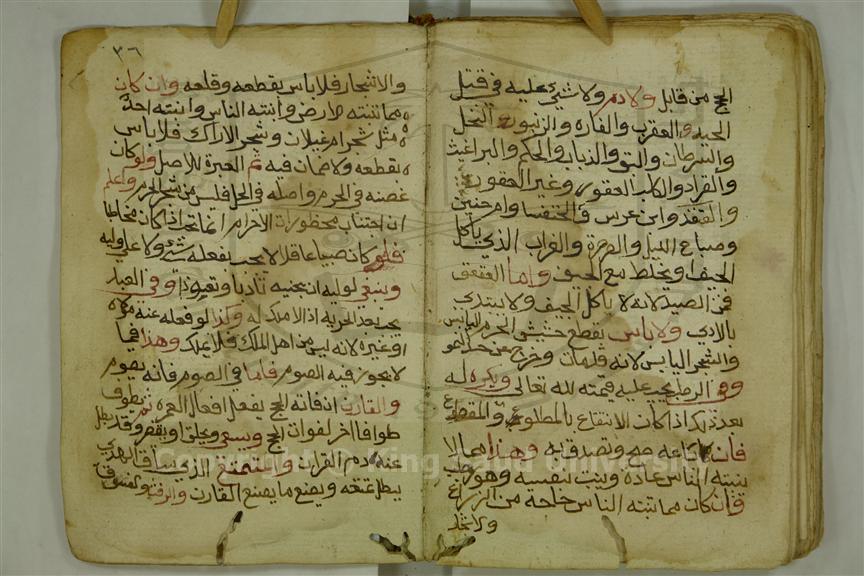 الحج من قابل ولا دم ولا شيء عليه في قتل
الحية والعقرب والفارة والزنبور والنحل
والسرطان والبق والذباب والحلم والبراغيث
والقراد والكلب العقور وغير العقور
والقنفذ وابن عرس والخنفسا وام حنين
وصياح الليل والصرصر والغراب الذي ياكل
الجيف ويخلط مع الجيف واما العقعق
فمن الصيد لانه لا ياكل الجيف ولا يبتدي
بالاذي ولا باس بقطع حشيش الحرم اليابس
والشجر اليابس لانه قد مات وخرج من حد النمو
وفي الرطب يجب عليه قيمته لله تعالى ويكره له
بعد ذلك اذا كان الانتفاع بالمقلوع والمقطوع
فان باعه صح وتصدق به وهذا مما لا
ينبته الناس عادة وينبت بنفسه وهو
وان كان مما تنبته الناس خاصة من الزراع
ولا شجار
٣٦
والاشجار فلا باس بقطعه وقلعه وان كان
مما تنبته الارض وانبته الناس وانبته احد
مثل شجر ام غيلان وشجر الاراك فلا باس
بقطعه ولا ضمان فيه ثم العبرة للاصل ولو كان
غصنه في الحرم واصله في الحل فليس من شجر الحرم واعلم
ان اجتناب محظورات الاحرام انما يجب اذا كان مخاطبا
فلو كان صبيا عاقلا لا يجب بفعله شيء ولا على وليه
وينبغي لوليه ان يجنبه تاديبا وتعويدا وفي العبد
يجب بعد الحرية اذ لا ملك له وكذا لو فعله عنه مولاه
او غيره لانه ليس من اهل الملك فلا يملك وهذا فيما
لا يجوز فيه الصوم فاما في الصوم فانه يصوم
والقارن ان فاته الحج يفعل افعال العمرة ثم يطوف
طوافا اخر لفوات الحج ويسعى ويحلق او يقصر وقد بطل
عنه دم القران والمتمتع الذي ساق الهدي
يبطل تمتعه ويصنع ما يصنع القارن